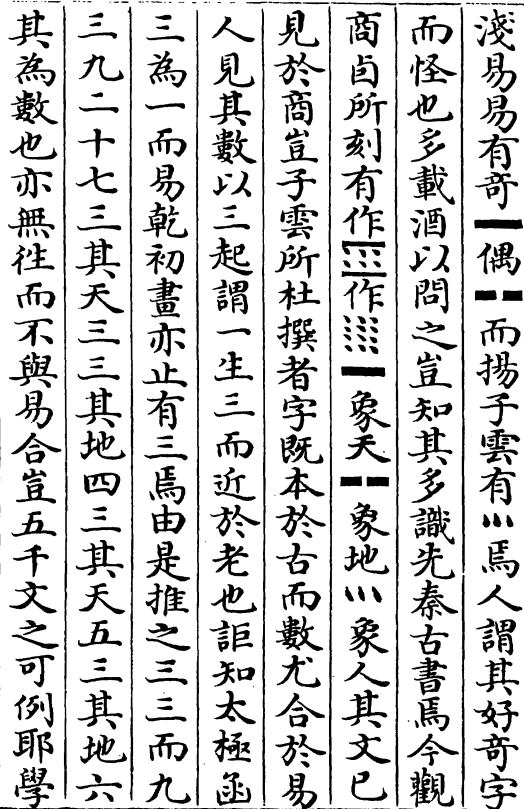 淺易易有竒━偶╍而揚子雲有⺌焉人謂其好竒字
而怪也多載酒以問之豈知其多識先秦古書焉今觀
商卣所刻有作作━象天╍象地⺌象人其文已
見於商豈子雲所杜撰者字旣本於古而數尤合於易
人見其數以三起謂一生三而近於老也詎知太極函
三為一而易乾初畫亦止有三焉由是推之三三而九
三九二十七三其天三三其地四三其天五三其地六
其為數也亦無徃而不與易合豈五千文之可例耶學